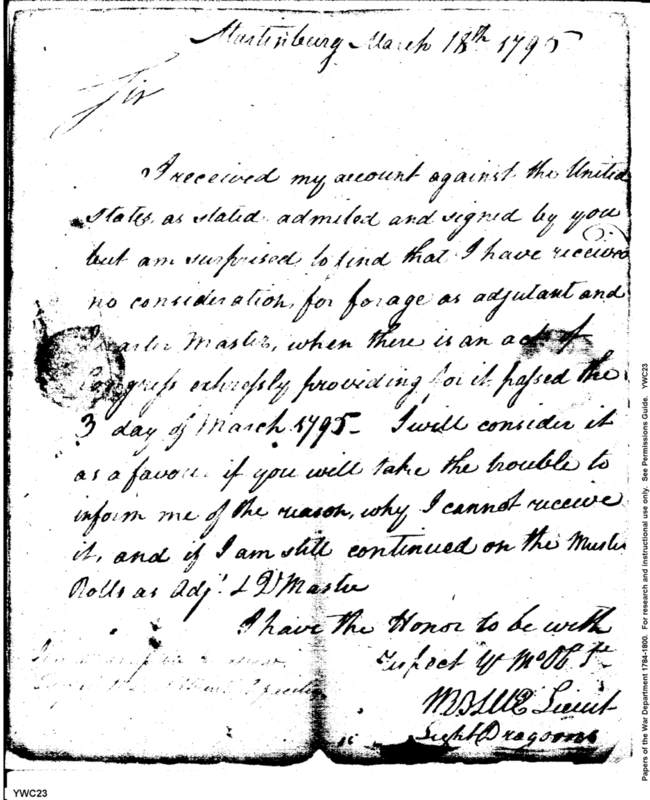 Martinburg March 18th 1795
Sir
I received my account against the United
States as stated admited and signed by you
but am surprised to find that I have receivd
no consideration, for forage as adjutant and
Quarter Master, when there is an act of
Congress expressly providing for it passed the
3 day of March 1795- I will consider it
as a favour if you will take the trouble to
inform me of the reason, why I cannot receive
it, and if I am still continued on the Muster
Rolls as Adjt. & Q Master
I have the Honor to be with
respect yr Mo Ob St
Lieut
Light Dragoons
YWC23
Papers of the War Department 1784-1800. For research and instructional use only. See Permissions Guide. YWC23